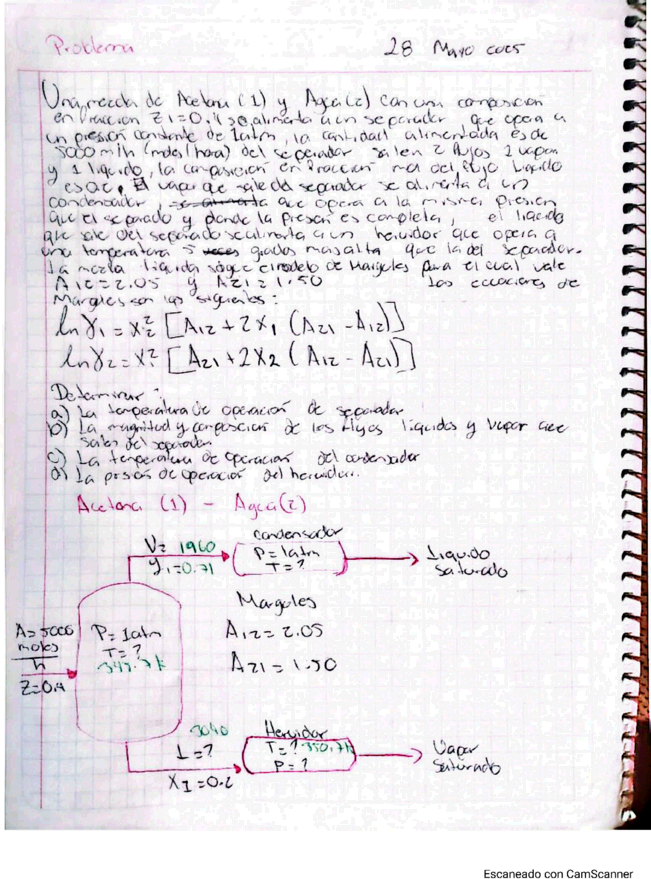 Problema
28 Mayo 2025
Una mezcla de Acetona (1) y Agua (2) con una composición
en fracción Z1=0.4 se alimenta a un separador que opera a
un presión constante de 1atm, la cantidad alimentada es de
5000 m/h (moles/hora) del separador salen 2 flujos 1 vapor
y 1 líquido, la composición en fracción mol del flujo líquido
es 0.2, El vapor que sale del separador se alimenta a un
condensador, que opera a la misma presión
que el separado y donde la presión es completa, el líquido
que sale del separado se alimenta a un hervidor que opera a
una temperatura 5 grados mas alta que la del separador.
La mezcla líquida sigue el modelo de Margules para el cual vale
A12=2.05 y A21=1.50 Las ecuaciones de
Margules son las siguientes:
ln γ1 = X2² [A12 + 2X1 (A21 - A12)]
ln γ2 = X1² [A21 + 2X2 (A12 - A21)]
Determinar:
a) La temperatura de operación de separador
b) La magnitud y composición de los flujos líquidos y vapor que
salen del separador
c) La temperatura de operación del condensador
d) La presión de operación del hervidor.
Acetona (1) - Agua (2)
V= 1960
y1=0.71
Condensador
P= 1atm
T= ?
Líquido
Saturado
A= 5000
moles
h
Z=0.4
P= 1atm
T= ?
Margules
A12= 2.05
A21 = 1.50
3040
L=?
X1=0.2
Hervidor
T= ? 350.7k
P= ?
Vapor
Saturado
Escaneado con CamScanner